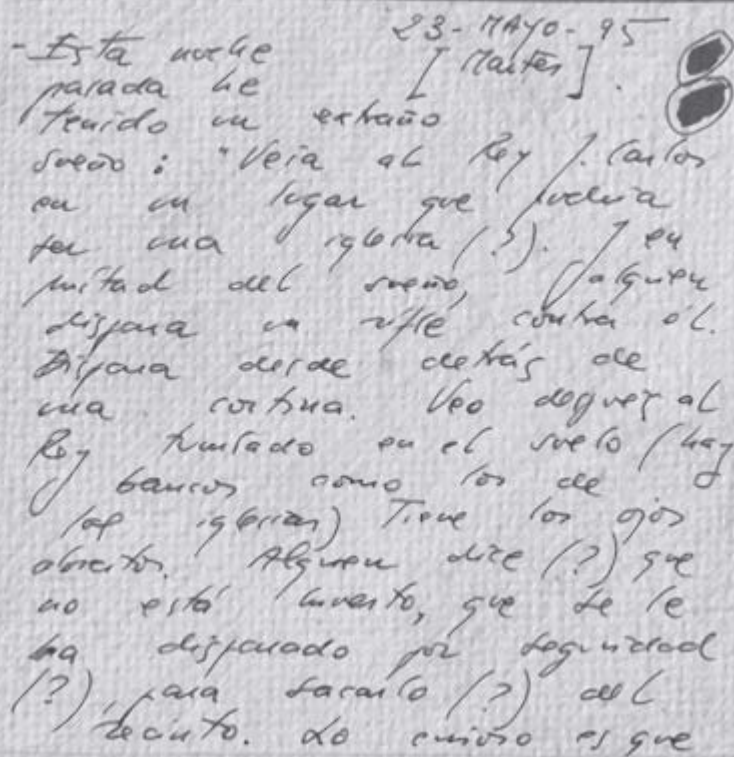 23-MAYO-95
- Esta noche [Martes].
pasada he
tenido un extraño
sueño: "Veía al Rey J. Carlos
en un lugar que podría
ser una iglesia (?). Y en
mitad del sueño, alguien
dispara un rifle contra él.
Dispara desde detrás de
una cortina. Veo después al
Rey tumbado en el suelo (hay
bancos como los de
las iglesias) Tiene los ojos
abiertos. Alguien dice (?) que
no está muerto, que se le
ha disparado por seguridad
(?), para sacarlo (?) del
recinto. Lo curioso es que